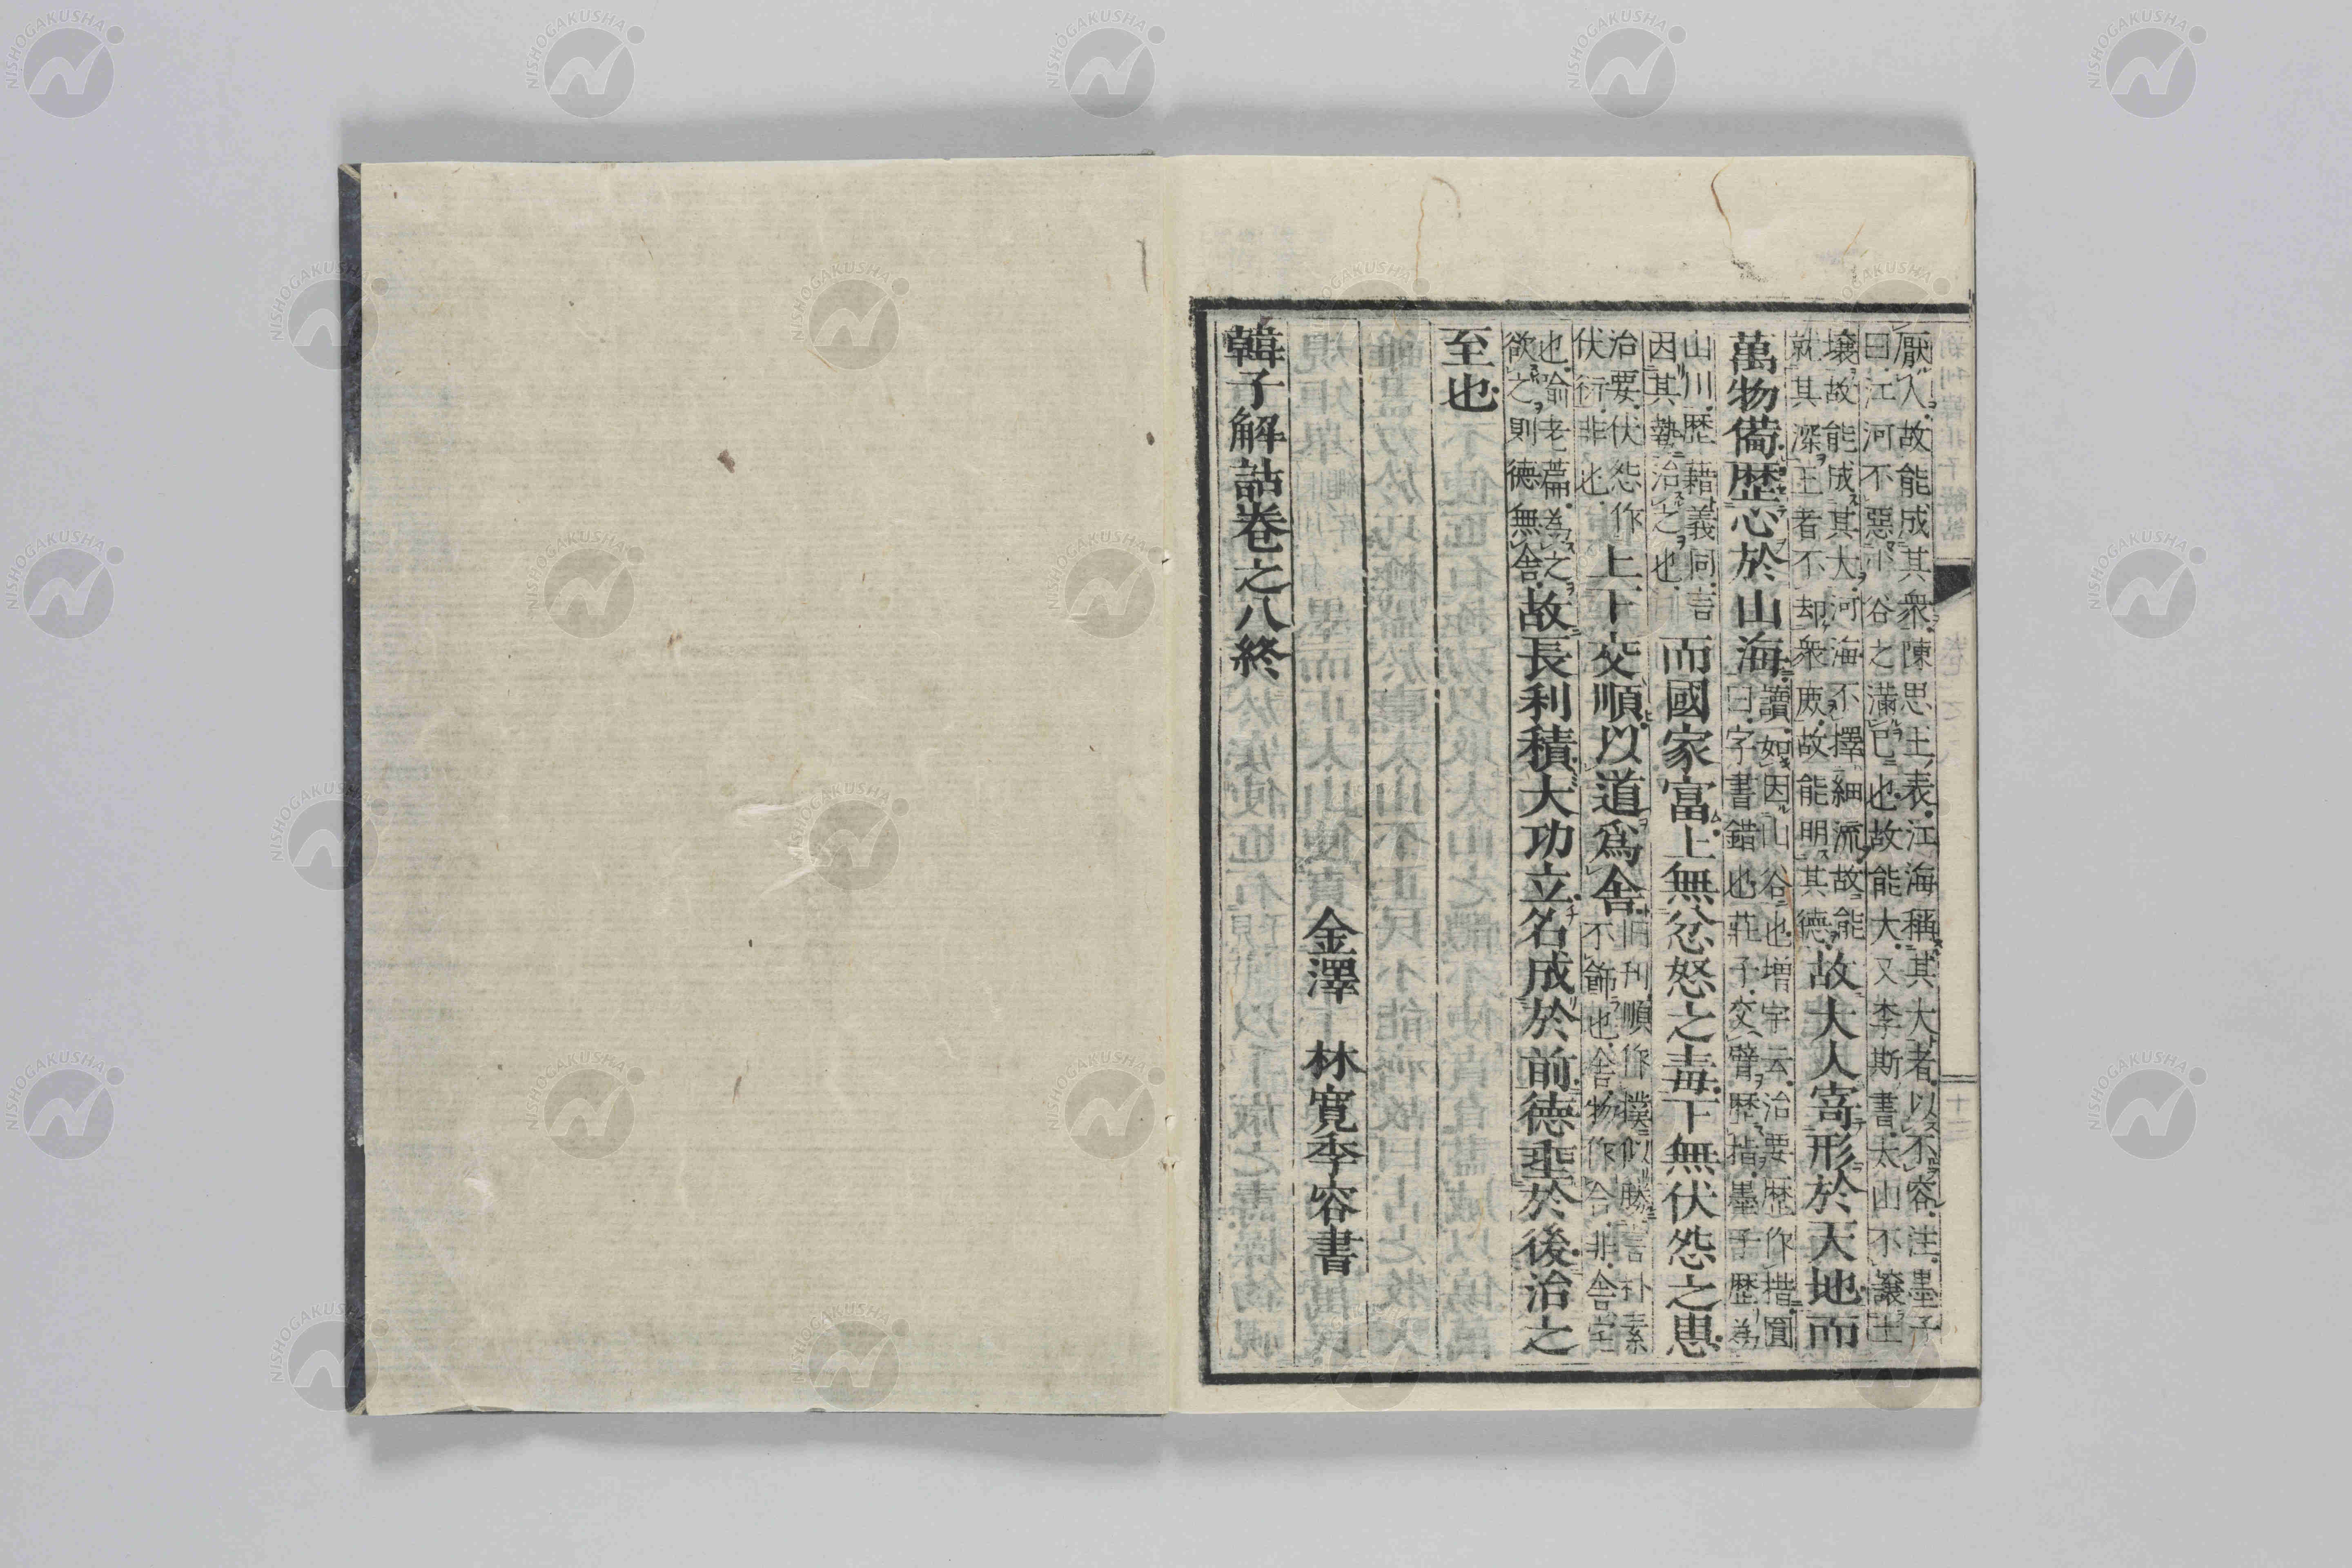 厭人故能成其衆陳思王表江海稱其大者以不容注墨子
曰江河不惡小谷之滿已也故能大又李斯書太山不讓土
壤故能成其大河海不擇細流故能
就其深王者不却衆庶故能明其德故大人寄形於天地而
萬物備歷心於山海讀如因山谷也増宇云治要歴作措圓
曰字書錯也莊子交臂歴指墨子歴為
山川歴藉義同言
因其勢治之也而國家富上無忿怒之毒下無伏怨之患
治要伏怨作
伏衍非也上下交順以道爲舍旧刋順作撲似勝言朴素
不飾也舍物作合非舍宜
也喻老篇為之
欲之則德無舎故長利積大功立名成於前德垂於後治之
至也
金澤 林寛季容書
韓子解詁卷之八終
NISHOGAKUSHA